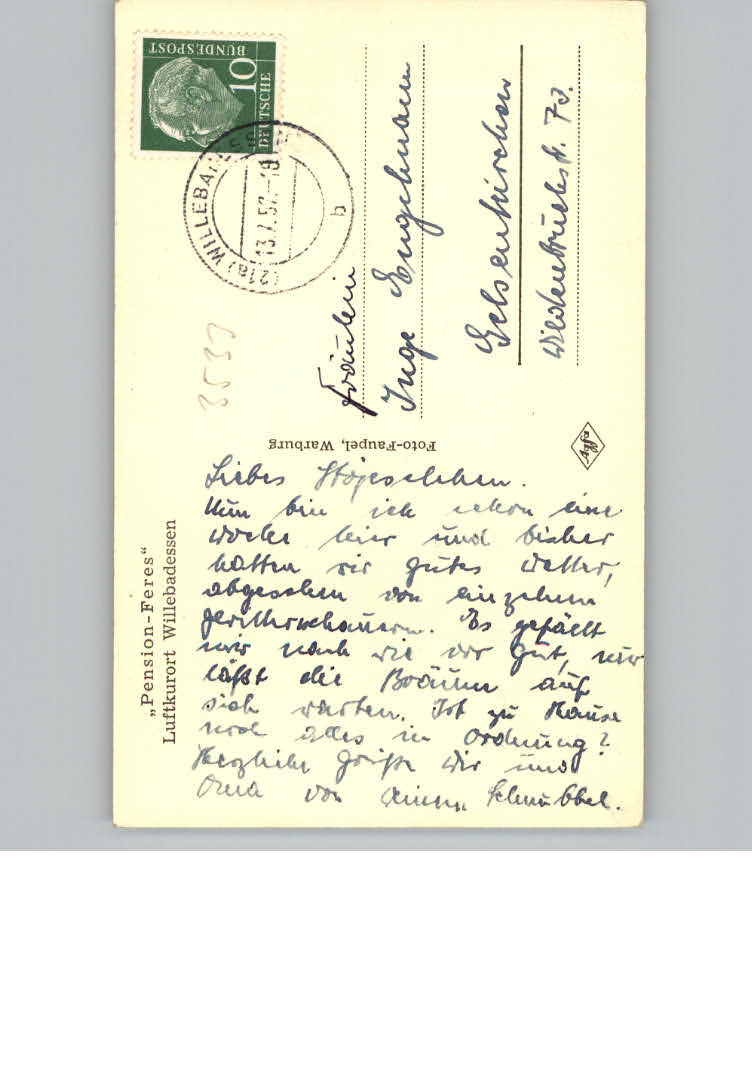 „Pension-Feres“
Luftkurort Willebadessen
Liebes
Nun bin ich schon eine
Woche hier und bisher
hatten wir gutes Wetter,
abgesehen von einzelnen
Gewitterschauern. Es gefällt
mir nach wie vor gut, nur
läßt die Bräune auf
sich warten. Ist zu Hause
noch alles in Ordnung?
Herzliche Grüße Dir und
Oma von Schnubbel.
Foto-Faupel, Warburg
Agfa
DEUTSCHE
BUNDESPOST
10
(21a) WILLEBADESSEN
13.7.57.-19
b
3533
Fräulein
Inge Engelmann
Gelsenkirchen
Wiedenbrückstr. 73.